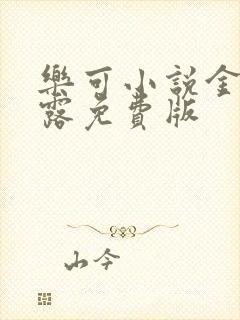 樂可小說金
露免費版
山今